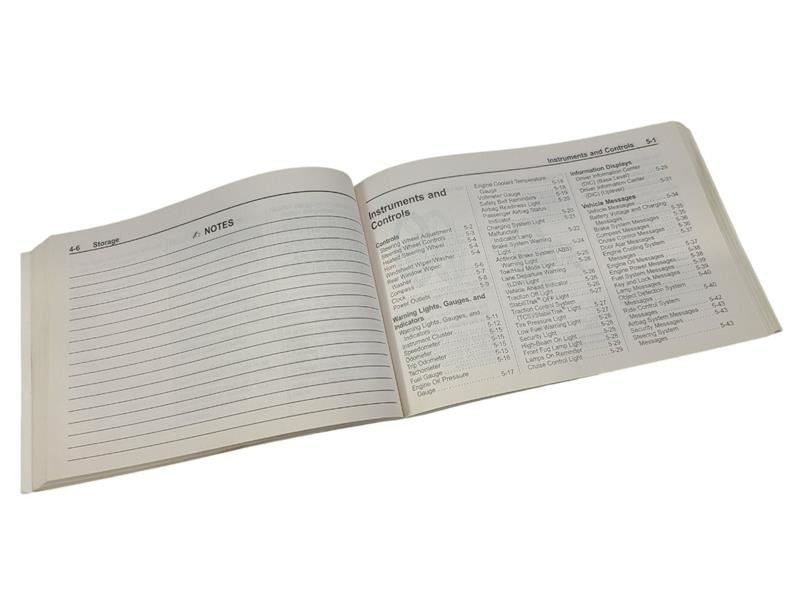 4-6 Storage
NOTES
Instruments and Controls 5-1
Instruments and
Controls
Controls
Steering Wheel Adjustment 5-2
Steering Wheel Controls 5-3
Heated Steering Wheel 5-4
Horn 5-4
Windshield Wiper/Washer 5-6
Rear Window Wiper/
Washer 5-7
Compass 5-8
Clock
Power Outlets 5-9
Warning Lights, Gauges, and
Indicators
Warning Lights, Gauges, and
Indicators 5-11
Instrument Cluster 5-12
Speedometer 5-15
Odometer 5-15
Trip Odometer 5-15
Tachometer 5-15
Fuel Gauge 5-16
Engine Oil Pressure
Gauge 5-17
Engine Coolant Temperature
Gauge 5-18
Voltmeter Gauge 5-18
Safety Belt Reminders 5-19
Airbag Readiness Light 5-20
Passenger Airbag Status
Indicator 5-20
Charging System Light 5-21
Malfunction
Indicator Lamp 5-22
Brake System Warning
Light 5-24
Antilock Brake System (ABS)
Warning Light 5-25
Tow/Haul Mode Light 5-26
Lane Departure Warning
(LDW) Light 5-26
Vehicle Ahead Indicator 5-26
Traction Off Light 5-26
StabiliTrak® OFF Light 5-27
Traction Control System
(TCS)/StabiliTrak® Light 5-27
Tire Pressure Light 5-27
Low Fuel Warning Light 5-28
Security Light 5-28
High-Beam On Light 5-28
Front Fog Lamp Light 5-28
Lamps On Reminder 5-29
Cruise Control Light 5-29
Information Displays
Driver Information Center
(DIC) (Base Level) 5-29
Driver Information Center
(DIC) (Uplevel) 5-31
Vehicle Messages
Vehicle Messages 5-34
Battery Voltage and Charging
Messages 5-35
Brake System Messages 5-35
Compass Messages 5-36
Cruise Control Messages 5-36
Door Ajar Messages
Engine Cooling System
Messages 5-37
Engine Oil Messages 5-38
Engine Power Messages 5-38
Fuel System Messages 5-39
Key and Lock Messages 5-39
Lamp Messages 5-40
Object Detection System
Messages 5-40
Ride Control System
Messages 5-42
Airbag System Messages 5-42
Security Messages 5-43
Steering System
Messages 5-43